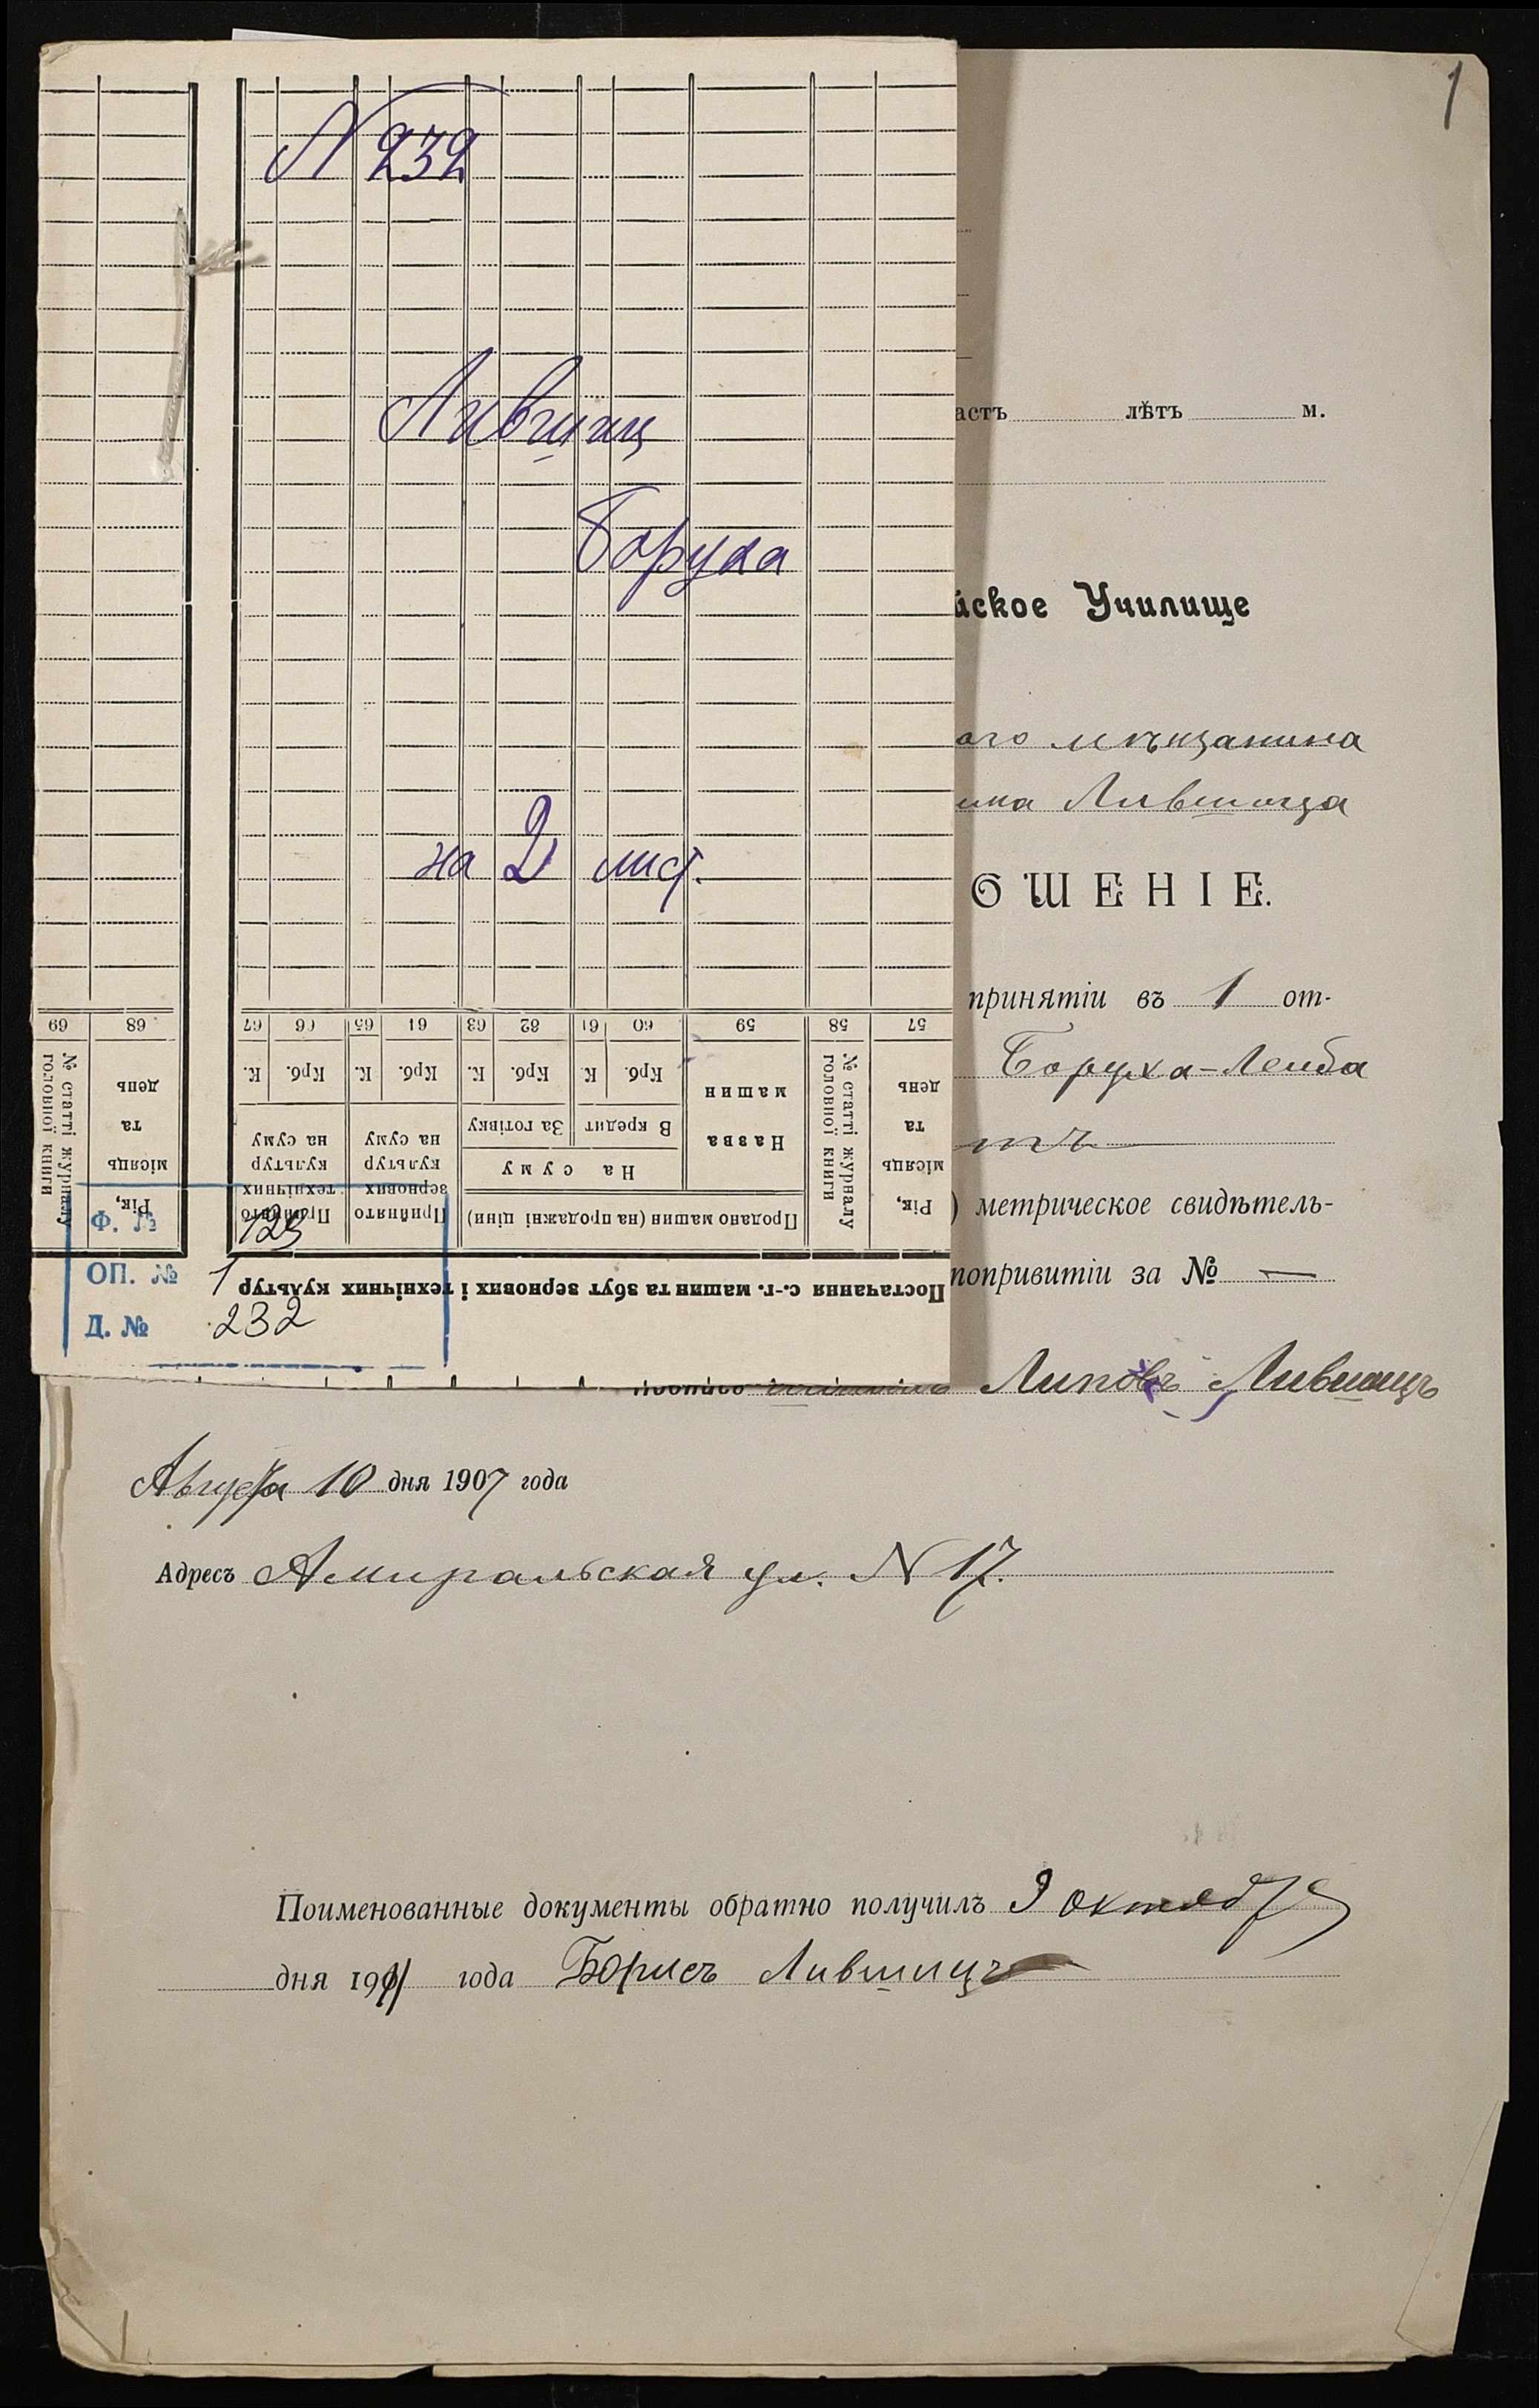 1
N 232
Лившиц
Боруха
на 2 лист.
69 68 67 66 65 64 63 62 61 60 59 58 57
№ статті журналу головної книги
Рік, місяць та день
К. Крб. К. Крб. К. Крб. К. Крб.
Прийнято технічних культур на суму
Прийнято зернових культур на суму
За готівку
В кредит
На суму
Продано машин (на продажні ціни)
Назва машин
№ статті журналу головної книги
Рік, місяць та день
Постачання с.-г. машин та збут зернових і технічних культур
Ф. № 123
ОП. № 1
Д. № 232
астъ лѣтъ м.
йское Училище
ого мѣщанина
Лившица
ОШЕНІЕ.
принятіи въ 1 от-
Боруха-Лейба
) метрическое свидѣтель-
попривитіи за № —
Лившицъ
Августа 10 дня 1907 года
Адресъ Амиральская ул. N 17.
Поименованные документы обратно получилъ 9 октября
дня 1911 года Борисъ Лившицъ